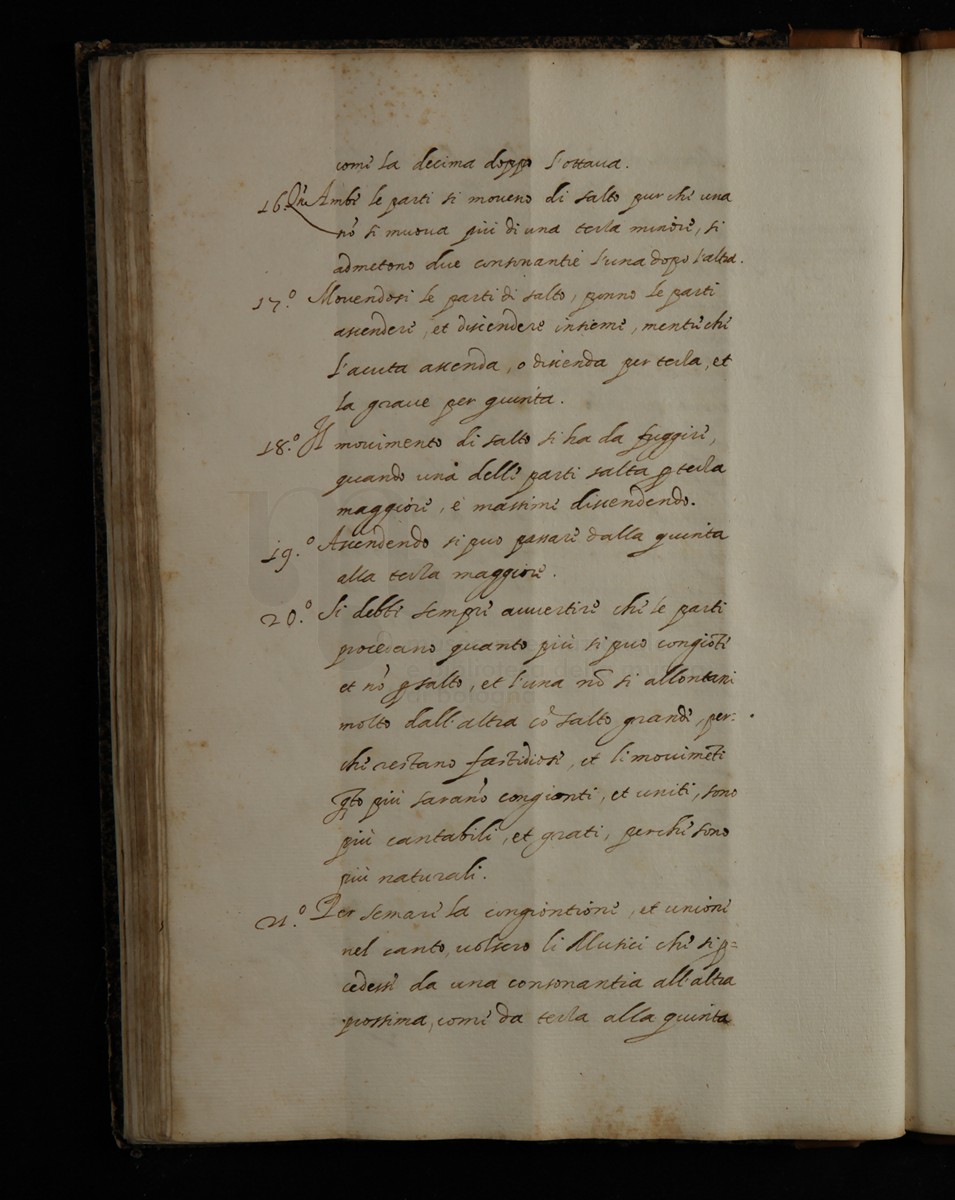 come la decima doppo l'ottaua.
16.° Qñ Ambe le parti si moueno di salto pur che una
nõ si muoua più di una terza minore, si
admetono due consonantie l'una dopo l'altra.
17.° Mouendosi le parti di salto, ponno le parti
ascendere, et discendere insieme, mentre che
l'acuta ascenda, o discenda per terza, et
la graue per quinta.
18.° Il mouimento di salto si ha da fuggire,
quando una delle parti salta p terza
maggiore, e massime discendendo.
19.° Ascendendo si puo passare dalla quinta
alla terza maggiore.
20.° Si debbe sempre auuertire che le parti
procedano quanto più si puo congiõte
et nõ p salto, et l'una nõ si allontani
molto dall'altra cõ salto grande, per:
che restano fastidiosi, et li mouimẽti
qto più saraño congionti, et uniti, sono
più cantabili, et grati, perche sono
più naturali.
21.° Per seruare la congiontione, et unione
nel canto, uolsero li Musici che si p=
cedesse da una consonantia all'altra
prossima, come da terza alla quinta